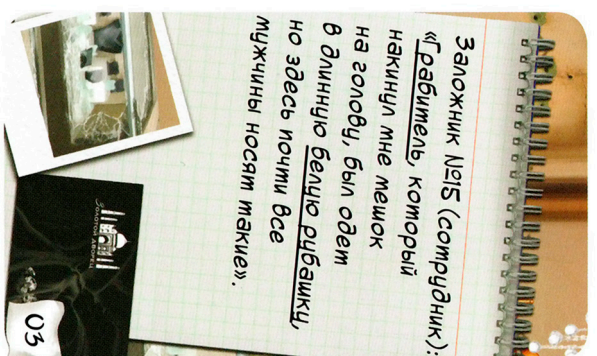 Заложник №15 (сотрудник):
«Грабитель, который
накинул мне мешок
на голову, был одет
в длинную белую рубашку,
но здесь почти все
мужчины носят такие».
ЗОЛОТОЙ ДВОРЕЦ
03